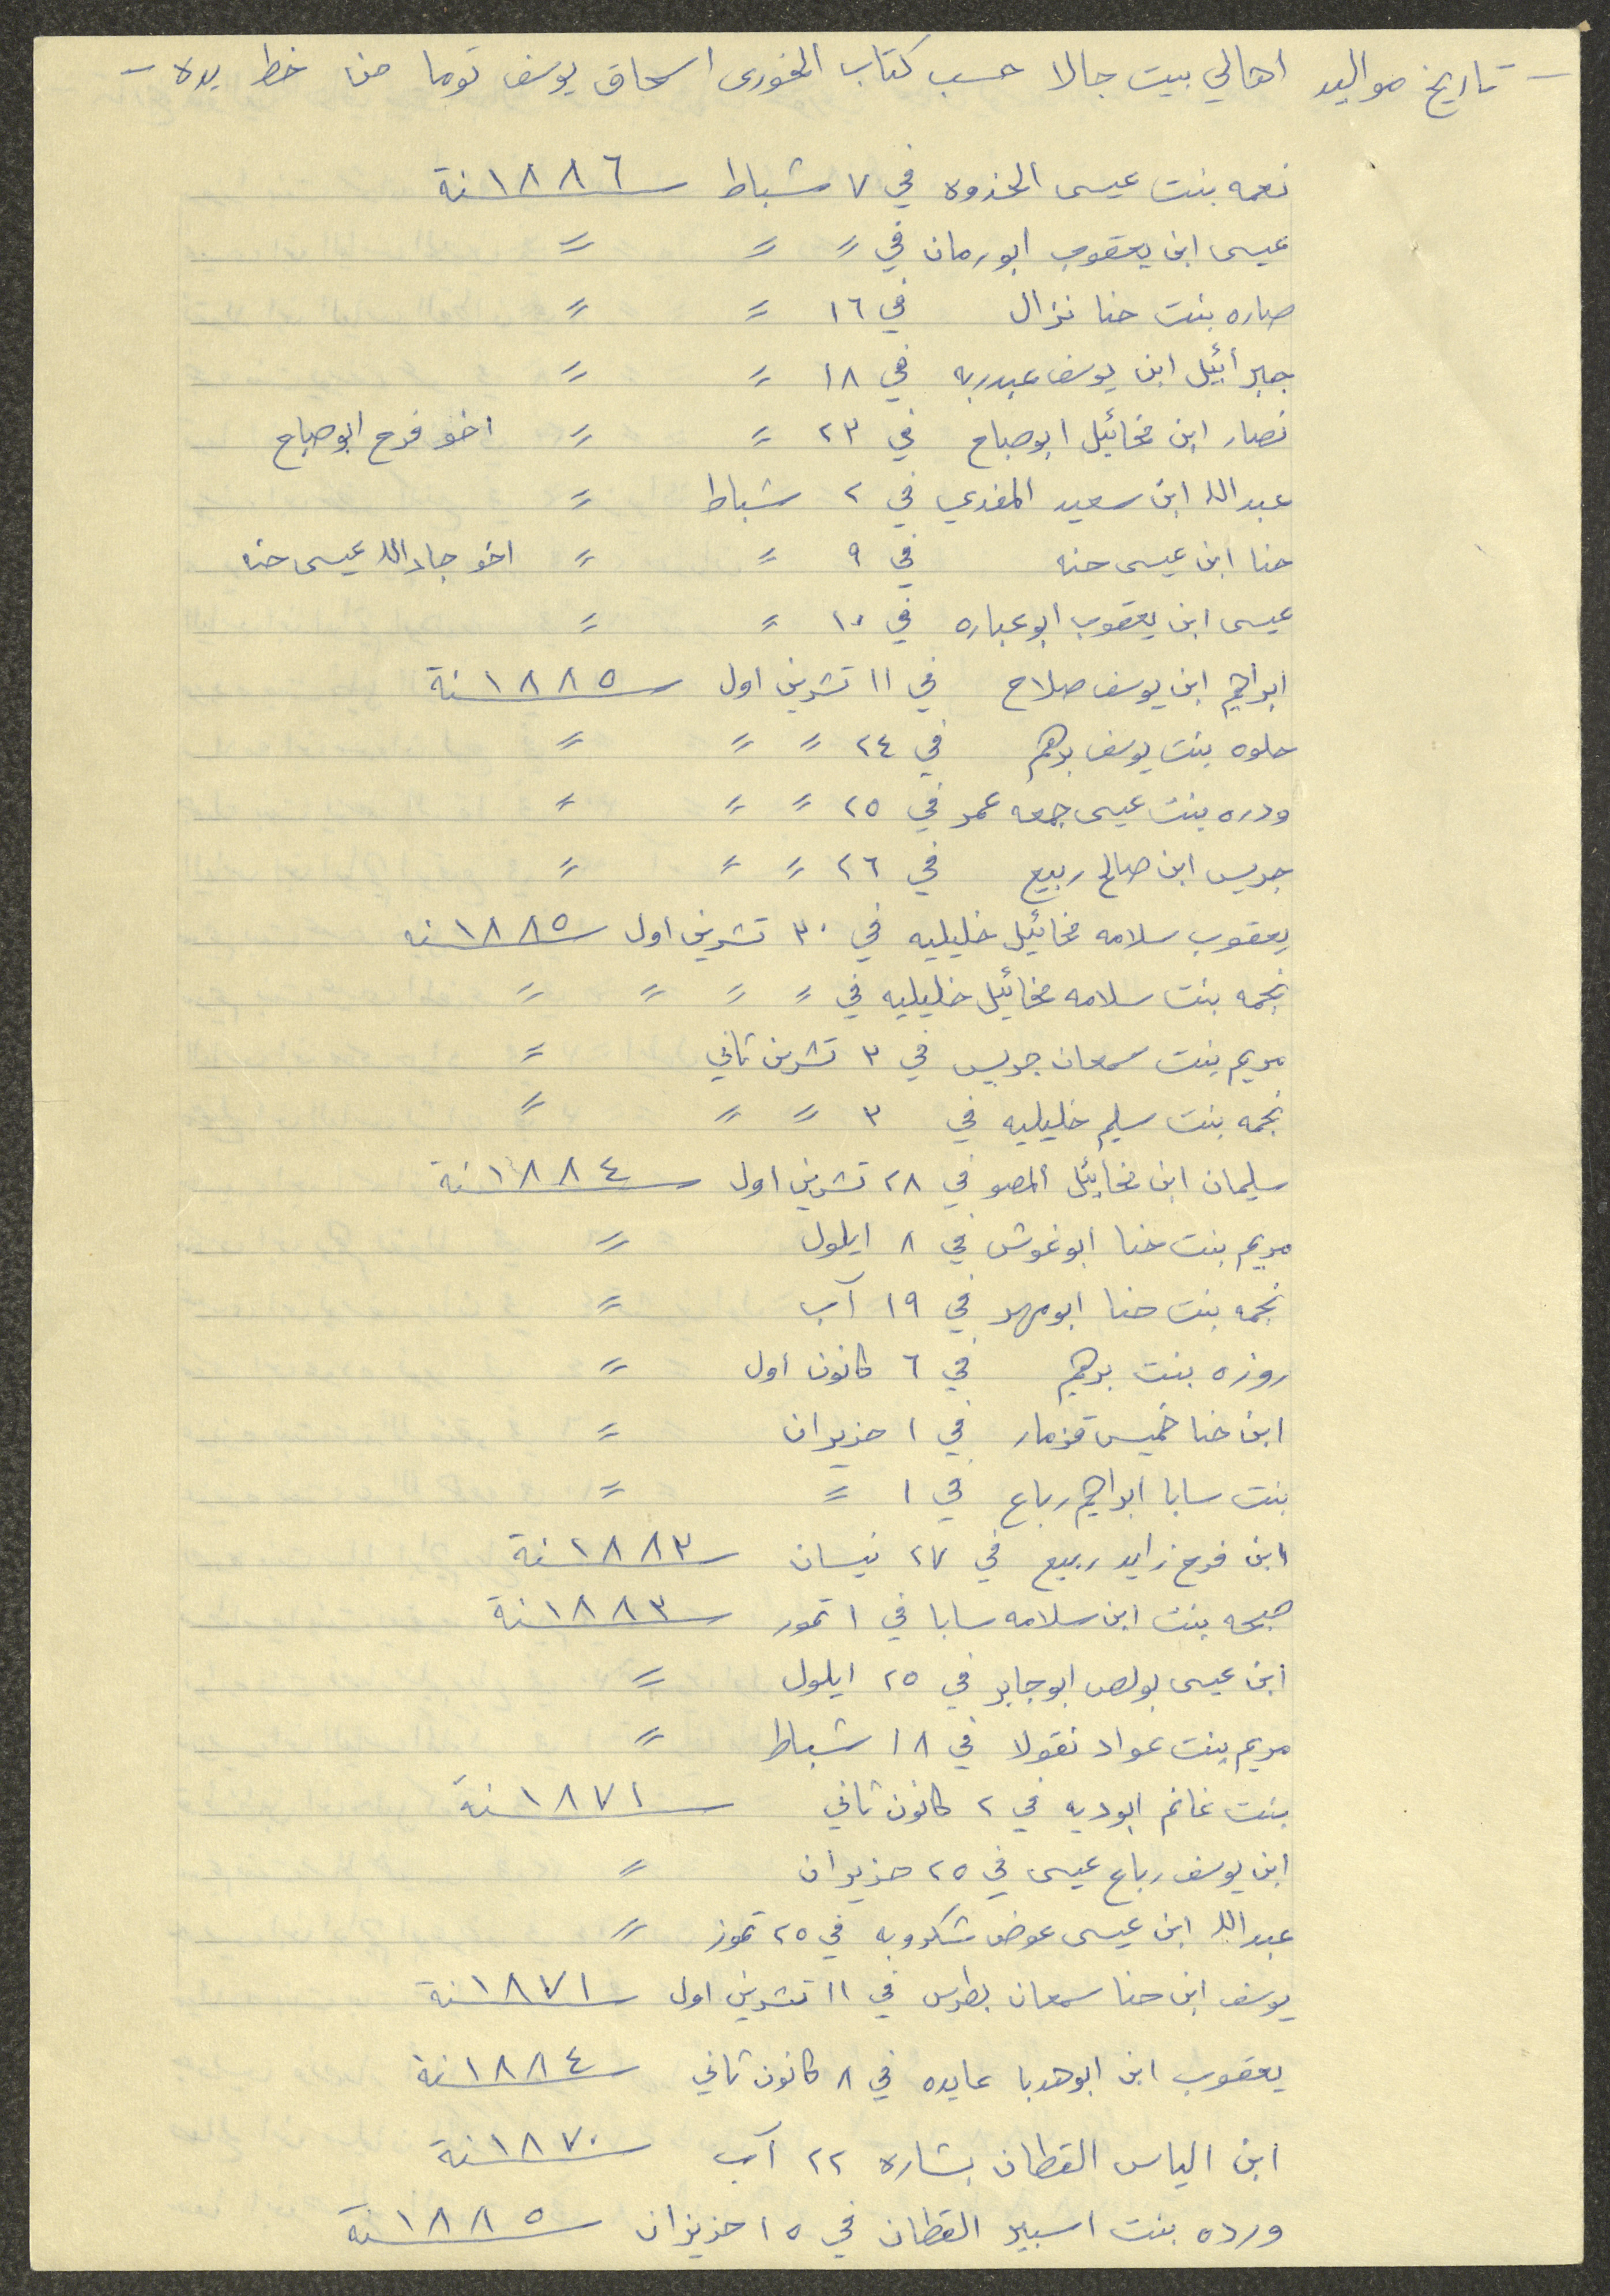 - تاريخ مواليد اهالي بيت جالا حسب كتاب الخوري اسحاق يوسف توما من خط يده -
نعمه بنت عيسى الحذوه في ٧ شباط سنة ١٨٨٦
عيسى ابن يعقوب ابورمان في " " "
صاره بنت حنا نزال في ١٦ " "
جبرائيل ابن يوسف عبدربه في ١٨ " "
نصار ابن مخائيل ابوصباح في ٢٣ " " اخو فرح ابوصباح
عبدالله ابن سعيد المفدي في ٢ شباط "
حنا ابن عيسى حنه في ٩ " " اخو جادالله عيسى حنه
عيسى ابن يعقوب ابوعباره في ١٠ " "
ابراهيم ابن يوسف صلاح في ١١ تشرين اول سنة ١٨٨٥
حلوه بنت يوسف برهم في ٢٤ " " "
ودره بنت عيسى جمعه عمر في ٢٥ " " "
جريس ابن صالح ربيع في ٢٦ " " "
يعقوب سلامه مخائيل خليليه في ٣٠ تشرين اول سنه ١٨٨٥
نجمه بنت سلامه مخائيل خليليه في " " " "
مريم بنت سمعان جريس في ٣ تشرين ثاني "
نجمه بنت سليم خليليه في ٣ " " "
سليمان ابن مخائيل المصو في ٢٨ تشرين اول سنة ١٨٨٤
مريم بنت حنا ابوغوش في ٨ ايلول "
نجمه بنت حنا ابومهر في ١٩ آب "
روزه بنت برهم في ٦ كانون اول "
ابن حنا خميس قزمار في ١ حزيران "
بنت سابا ابراهيم رباع في ١ " "
ابن فرح زايد ربيع في ٢٧ نيسان سنة ١٨٨٣
صبحه بنت ابن سلامه سابا في ١ تموز سنة ١٨٨٣
ابن عيسى بولص ابوجابر في ٢٥ ايلول "
مريم بنت عواد نقولا في ١٨ شباط "
بنت غانم ابوديه في ٢ كانون ثاني سنة ١٨٧١
ابن يوسف رباع عيسى في ٢٥ حزيران "
عبدالله ابن عيسى عوض شكرويه في ٢٥ تموز "
يوسف ابن حنا سمعان بطرس في ١١ تشرين اول سنة ١٨٧١
يعقوب ابن ابوهدبا عايده في ٨ كانون ثاني سنة ١٨٨٤
ابن الياس القطان بشاره ٢٢ آب سنة ١٨٧٠
ورده بنت اسبير القطان في ١٥ حزيران سنة ١٨٨٥